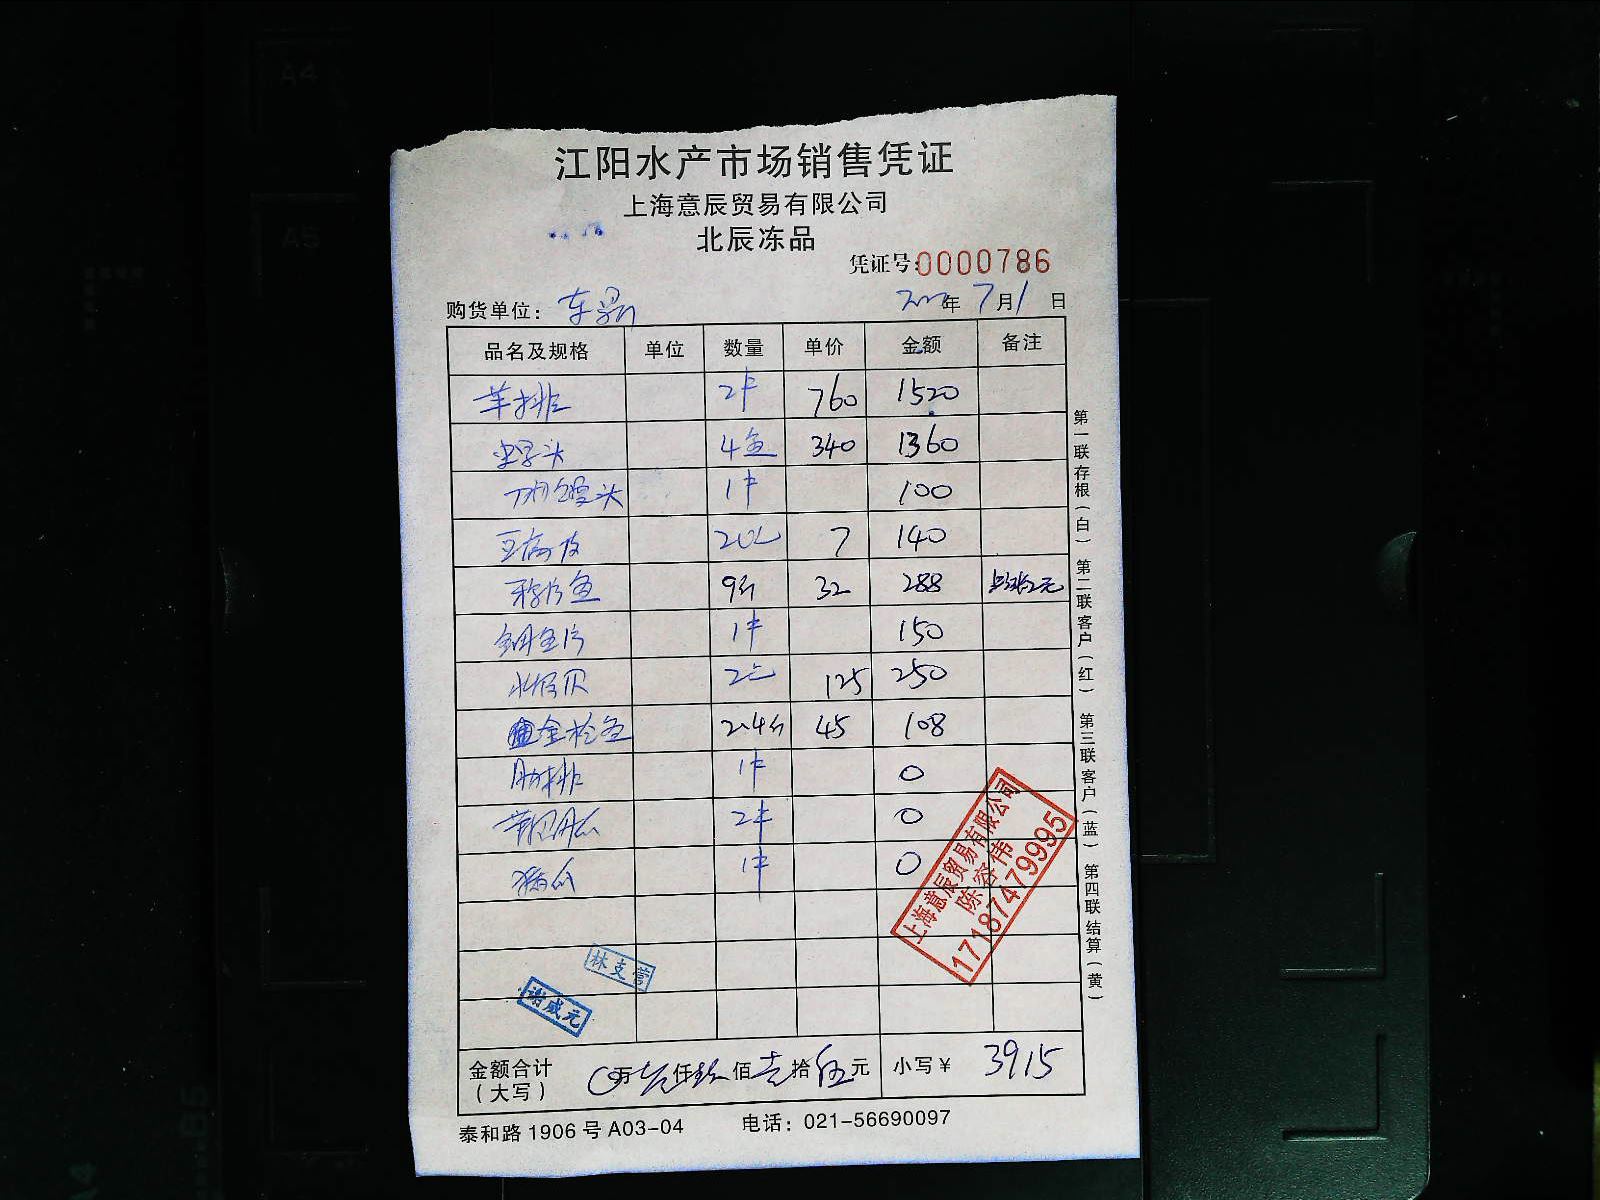 江阳水产市场销售凭证
上海意辰贸易有限公司
北辰冻品
凭证号:0000786
购货单位: 年 7月1日
品名及规格 单位 数量 单价 金额 备注
羊排 2件 760 1520
头 4 340 1360
头 1件 100
豆腐皮 20 7 140
鱼 9斤 32 288 元
鱼片 1件 150
贝 2 125 250
金枪鱼 2.4斤 45 108
肋排 1件 0
2件 0
1件 0
上海意辰贸易有限公司
陈容伟
17187479995
林支营
谢咸元
金额合计
(大写)
万 仟玖佰壹拾伍元 小写¥ 3915
泰和路1906号A03-04 电话: 021-56690097
第一联存根(白) 第二联客户(红) 第三联客户(蓝) 第四联结算(黄)
A4
A5